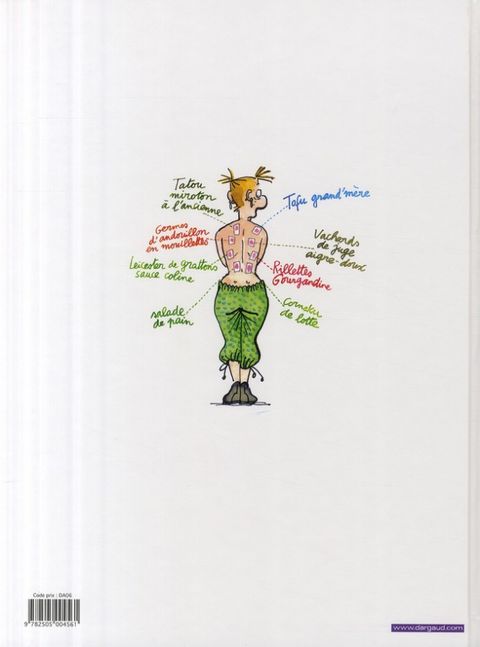 Tatou
miroton
à l'ancienne
Tofu grand'mère
Germes
d'andouillon
en mouillettes
Vacherds
de juge
aigre-doux
Leicester de grattons
sauce coline
Rillettes
Gourgandine
salade
de pain
Corneku
de lotte
Code prix : DA06
9 782505 004561
www.dargaud.com